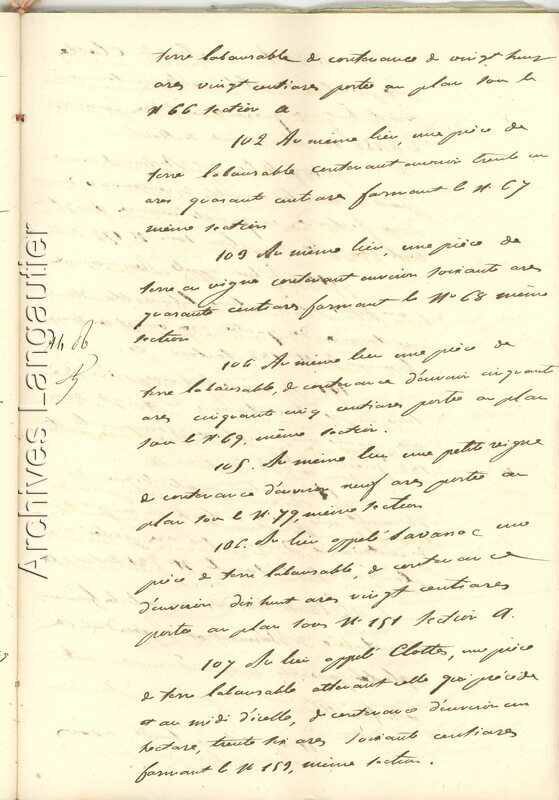 terre labourable de contenance de vingt huit
ares vingt centiares portée au plan sous le
N° 66 section a
102 Au même lieu, une pièce de
terre labourable contenant environ trente un
ares quarante centiares formant le N° 67
même section
103 Au même lieu, une pièce de
terre en vigne contenant environ soixante ares
quarante centiares formant le N° 68 même
section
104 Au même lieu une pièce de
terre labourable, de contenance d'environ cinquante
ares cinquante cinq centiares portée au plan
sous le N° 69, même section.
105. Au même lieu une petite vigne
de contenance d'environ neuf ares portée au
plan sous le N° 79, même section
106. Au lieu appelé Savanac une
pièce de terre labourable, de contenance
d'environ dix huit ares vingt centiares
portée au plan sous N° 151 Section A.
107 Au lieu appelé Clottes, une pièce
de terre labourable attenant celle qui précède
et au midi d'icelle, de contenance d'environ un
hectare, trente six ares soixante centiares
formant le N° 153, même section.
Archives Langautier